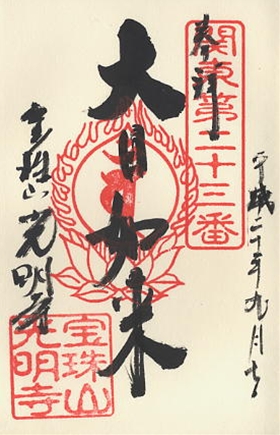 平成二十年九月
関東第二十三番
奉拝
大日如来
宝珠山光明寺
宝珠山
光明寺